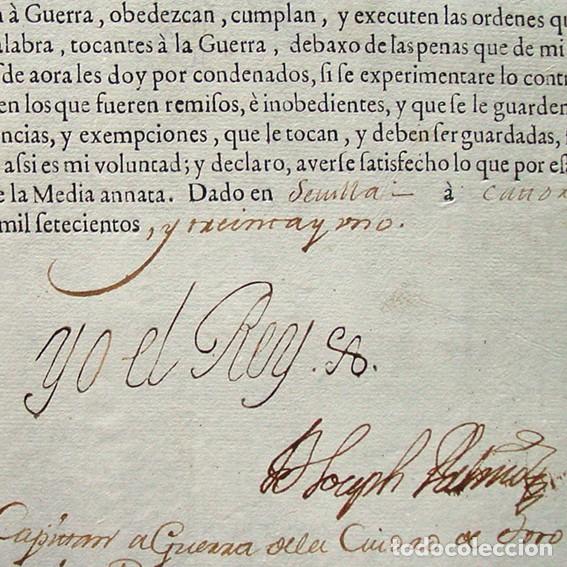 à Guerra, obedezcan, cumplan, y executen las ordenes qu
alabra, tocantes à la Guerra, debaxo de las penas que de mi
sde aora les doy por condenados, si se experimentare lo contr
en los que fueren remisos, è inobedientes, y que se le guarden
ncias, y exempciones, que le tocan, y deben ser guardadas,
assi es mi voluntad; y declaro, averse satisfecho lo que por est
e la Media annata. Dado en Sevilla à cator
mil setecientos, y treinta y uno.
yo el Rey.
Dn Joseph Patiño
Capitan a Guerra de la Ciudad de Toro
todocoleccion